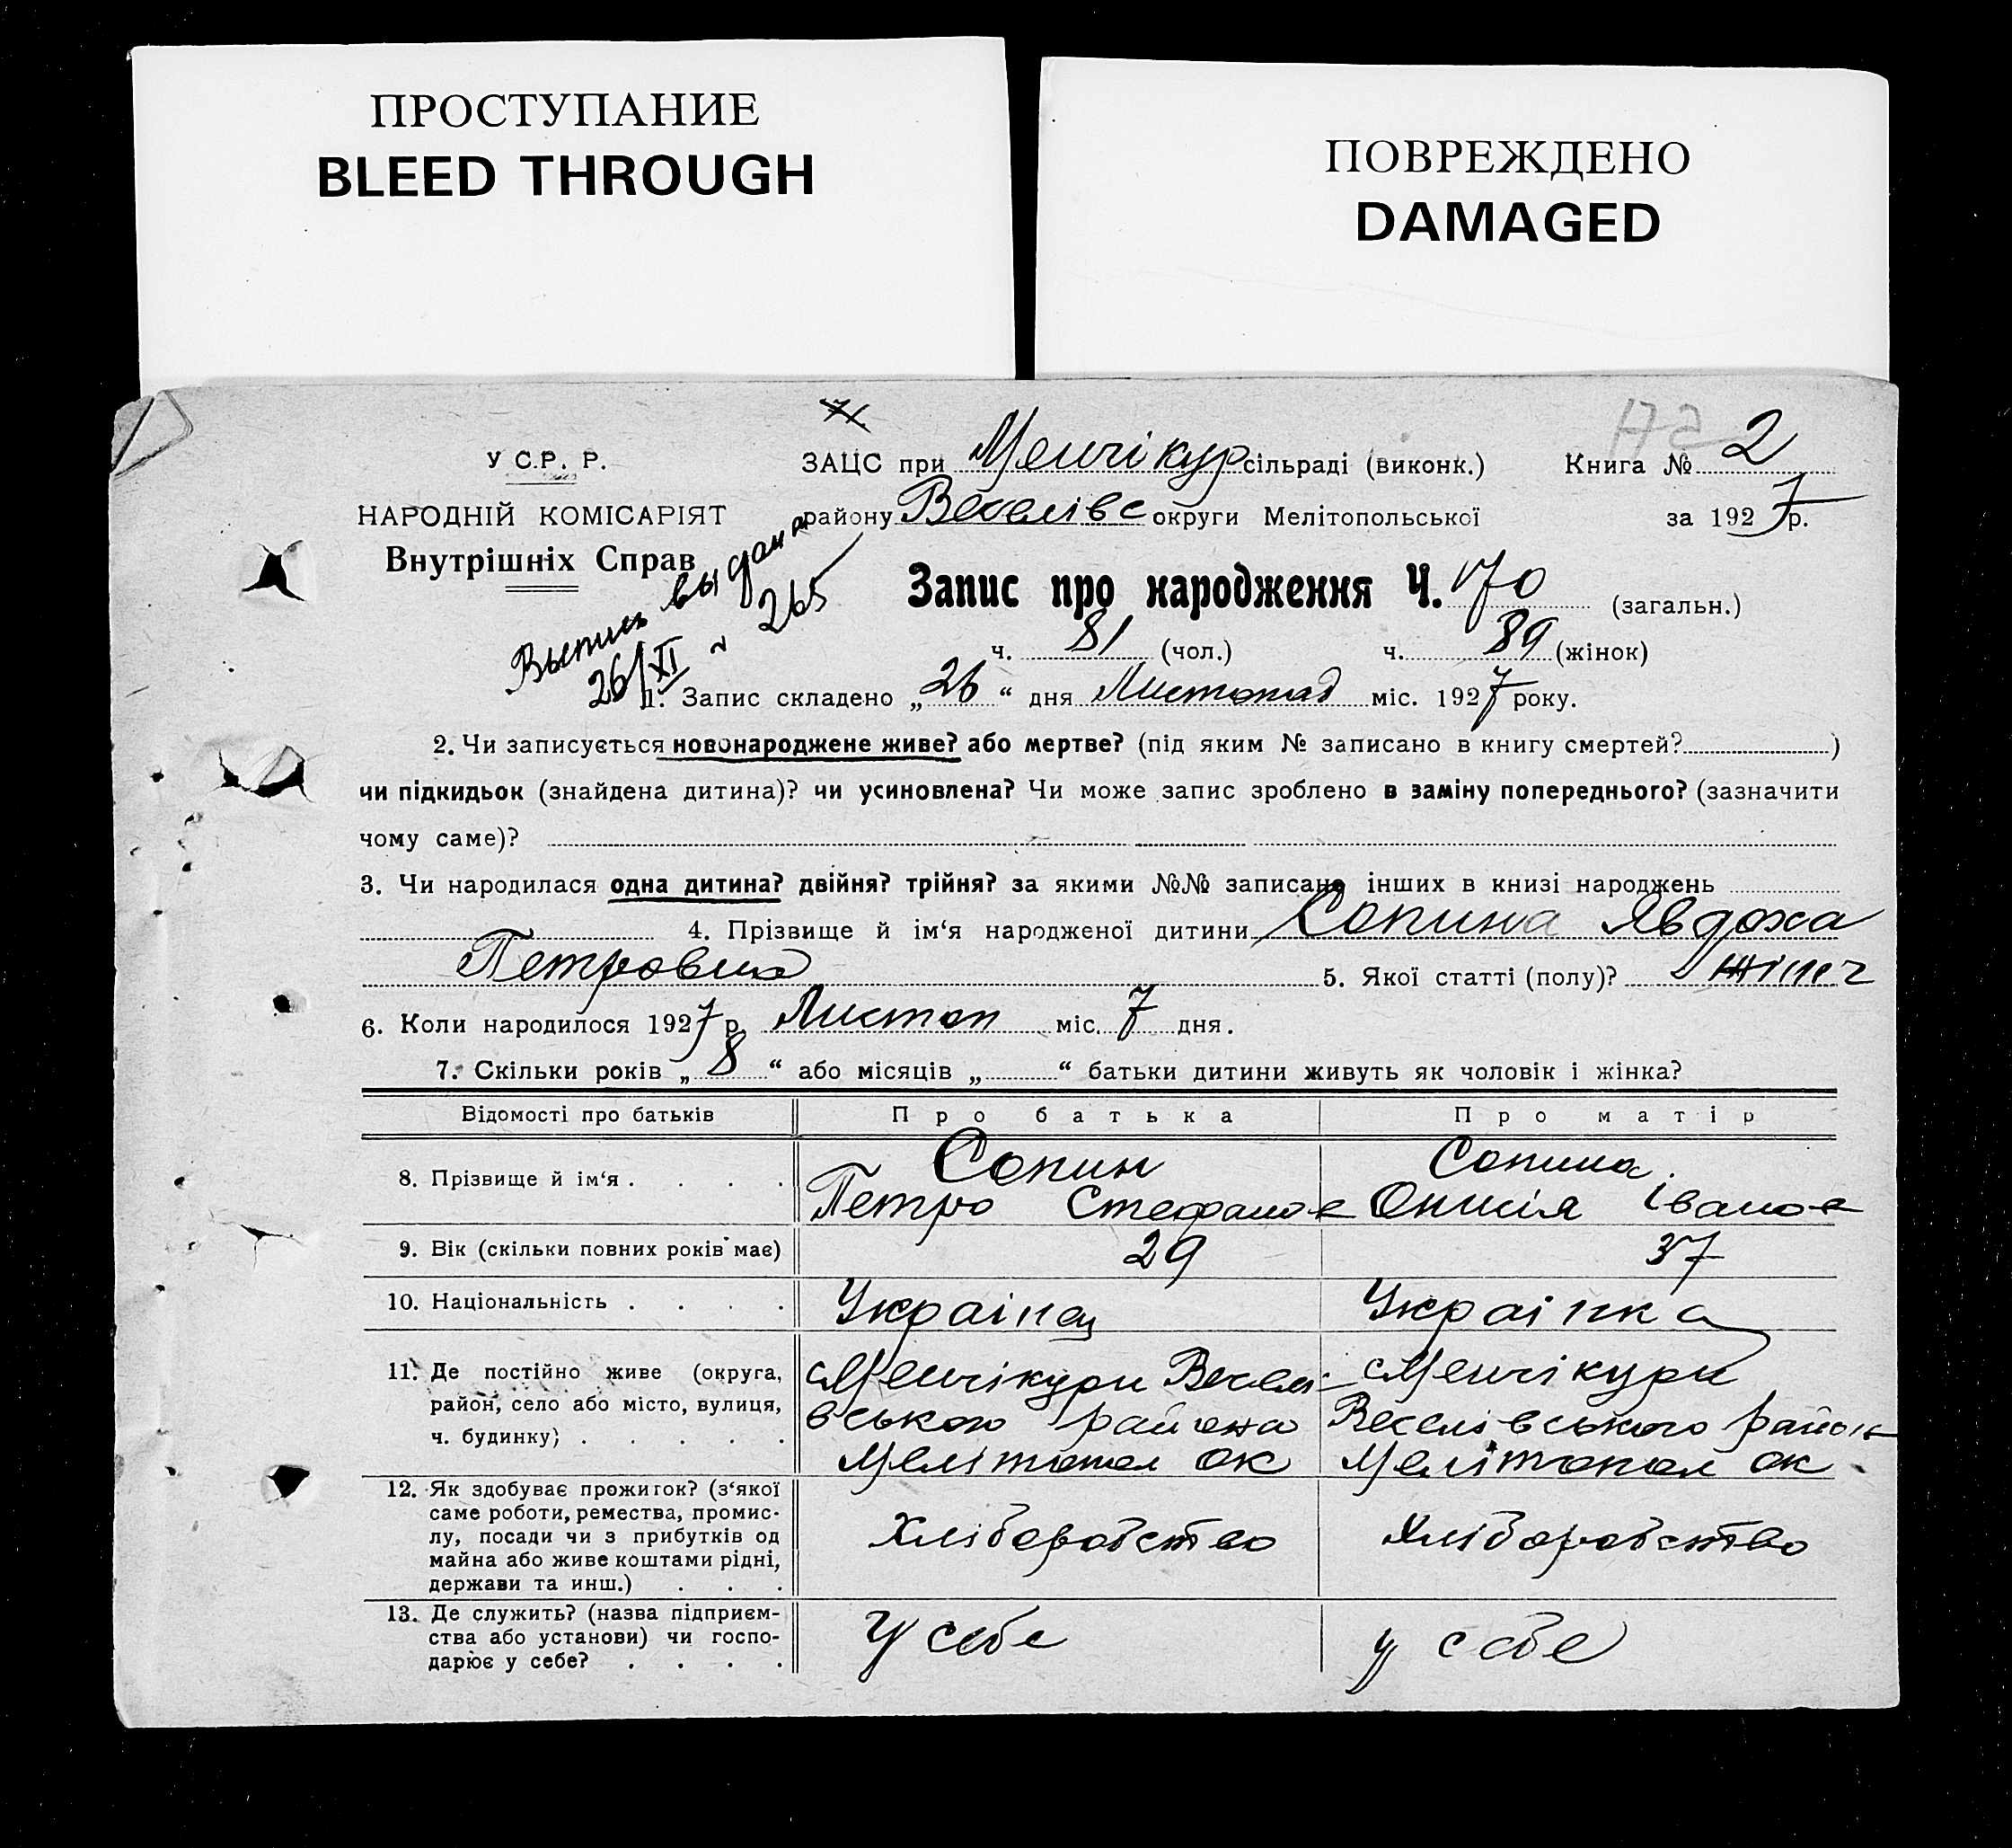 ПРОСТУПАНИЕ
BLEED THROUGH
ПОВРЕЖДЕНО
DAMAGED
У С.Р. Р.
НАРОДНІЙ КОМІСАРІЯТ
Внутрішніх Справ
ЗАЦС при Менчікур сільраді (виконк.) Книга № 2
району Веселівс округи Мелітопольської за 1927 р.
Выпись выдана
26/XI № 265
Запис про народження Ч. 170 (загальн.)
ч. 81 (чол.) ч. 89 (жінок)
1. Запис складено „26“ дня Листопад міс. 1927 року.
2. Чи записується новонароджене живе? або мертве? (під яким № записано в книгу смертей? )
чи підкидьок (знайдена дитина)? чи усиновлена? Чи може запис зроблено в заміну попереднього? (зазначити
чому саме)?
3. Чи народилася одна дитина? двійня? трійня? за якими №№ записано інших в книзі народжень
4. Прізвище й ім‘я народженої дитини Сопина Явдоха
Петровна 5. Якої статті (полу)? жіноч
6. Коли народилося 1927 р. Листоп міс. 7 дня.
7. Скільки років „8“ або місяців „ “ батьки дитини живуть як чоловік і жінка?
Відомості про батьків Про батька Про матір
8. Прізвище й ім‘я . . . . Сопин Сопина.
Петро Стефанов Онисія Іванов
9. Вік (скільки повних років має) 29 37
10. Національність . . . . Українец Українка
11. Де постійно живе (округа, Менчікури Веселі- Менчікури
район, село або місто, вулиця, вського района Веселівського район
ч. будинку) . . . . . Мелітопол ок Мелітопол ок
12. Як здобуває прожиток? (з‘якої
саме роботи, ремества, промис-
лу, посади чи з прибутків од Хліборобство Хліборобство
майна або живе коштами рідні,
держави та инш.) . . .
13. Де служить? (назва підприєм-
ства або установи) чи госпо- У себе у себе
дарює у себе? . . . .